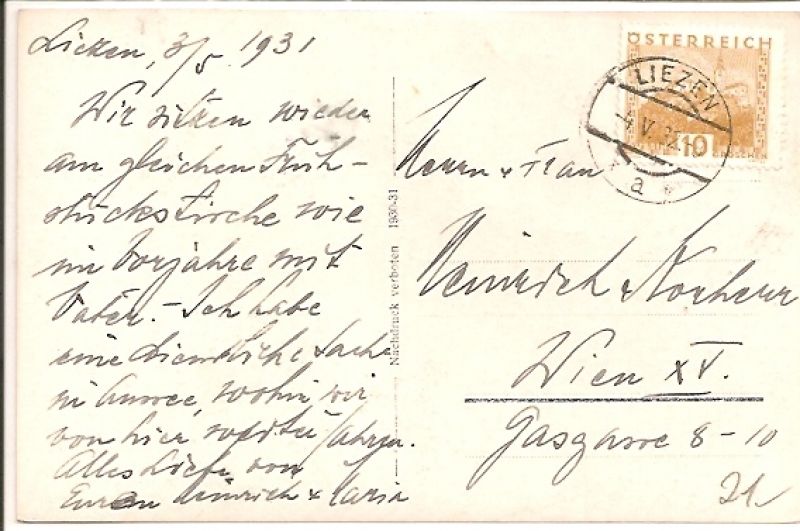 Liezen, 3/5. 1931
Wir sitzen wieder
am gleichen Früh-
stückstische wie
im Vorjahre mit
Vater. - Ich habe
eine dienstliche Sache
in Aussee, wohin wir
von hier weiter fahren.
Alles Liebe von
Euren Heinrich & Maria
Nachdruck verboten 1930-31
ÖSTERREICH
10
GROSCHEN
LIEZEN
4 V 31
a
Herrn & Frau
Heinrich &
Wien XV.
Gasgasse 8-10
21.